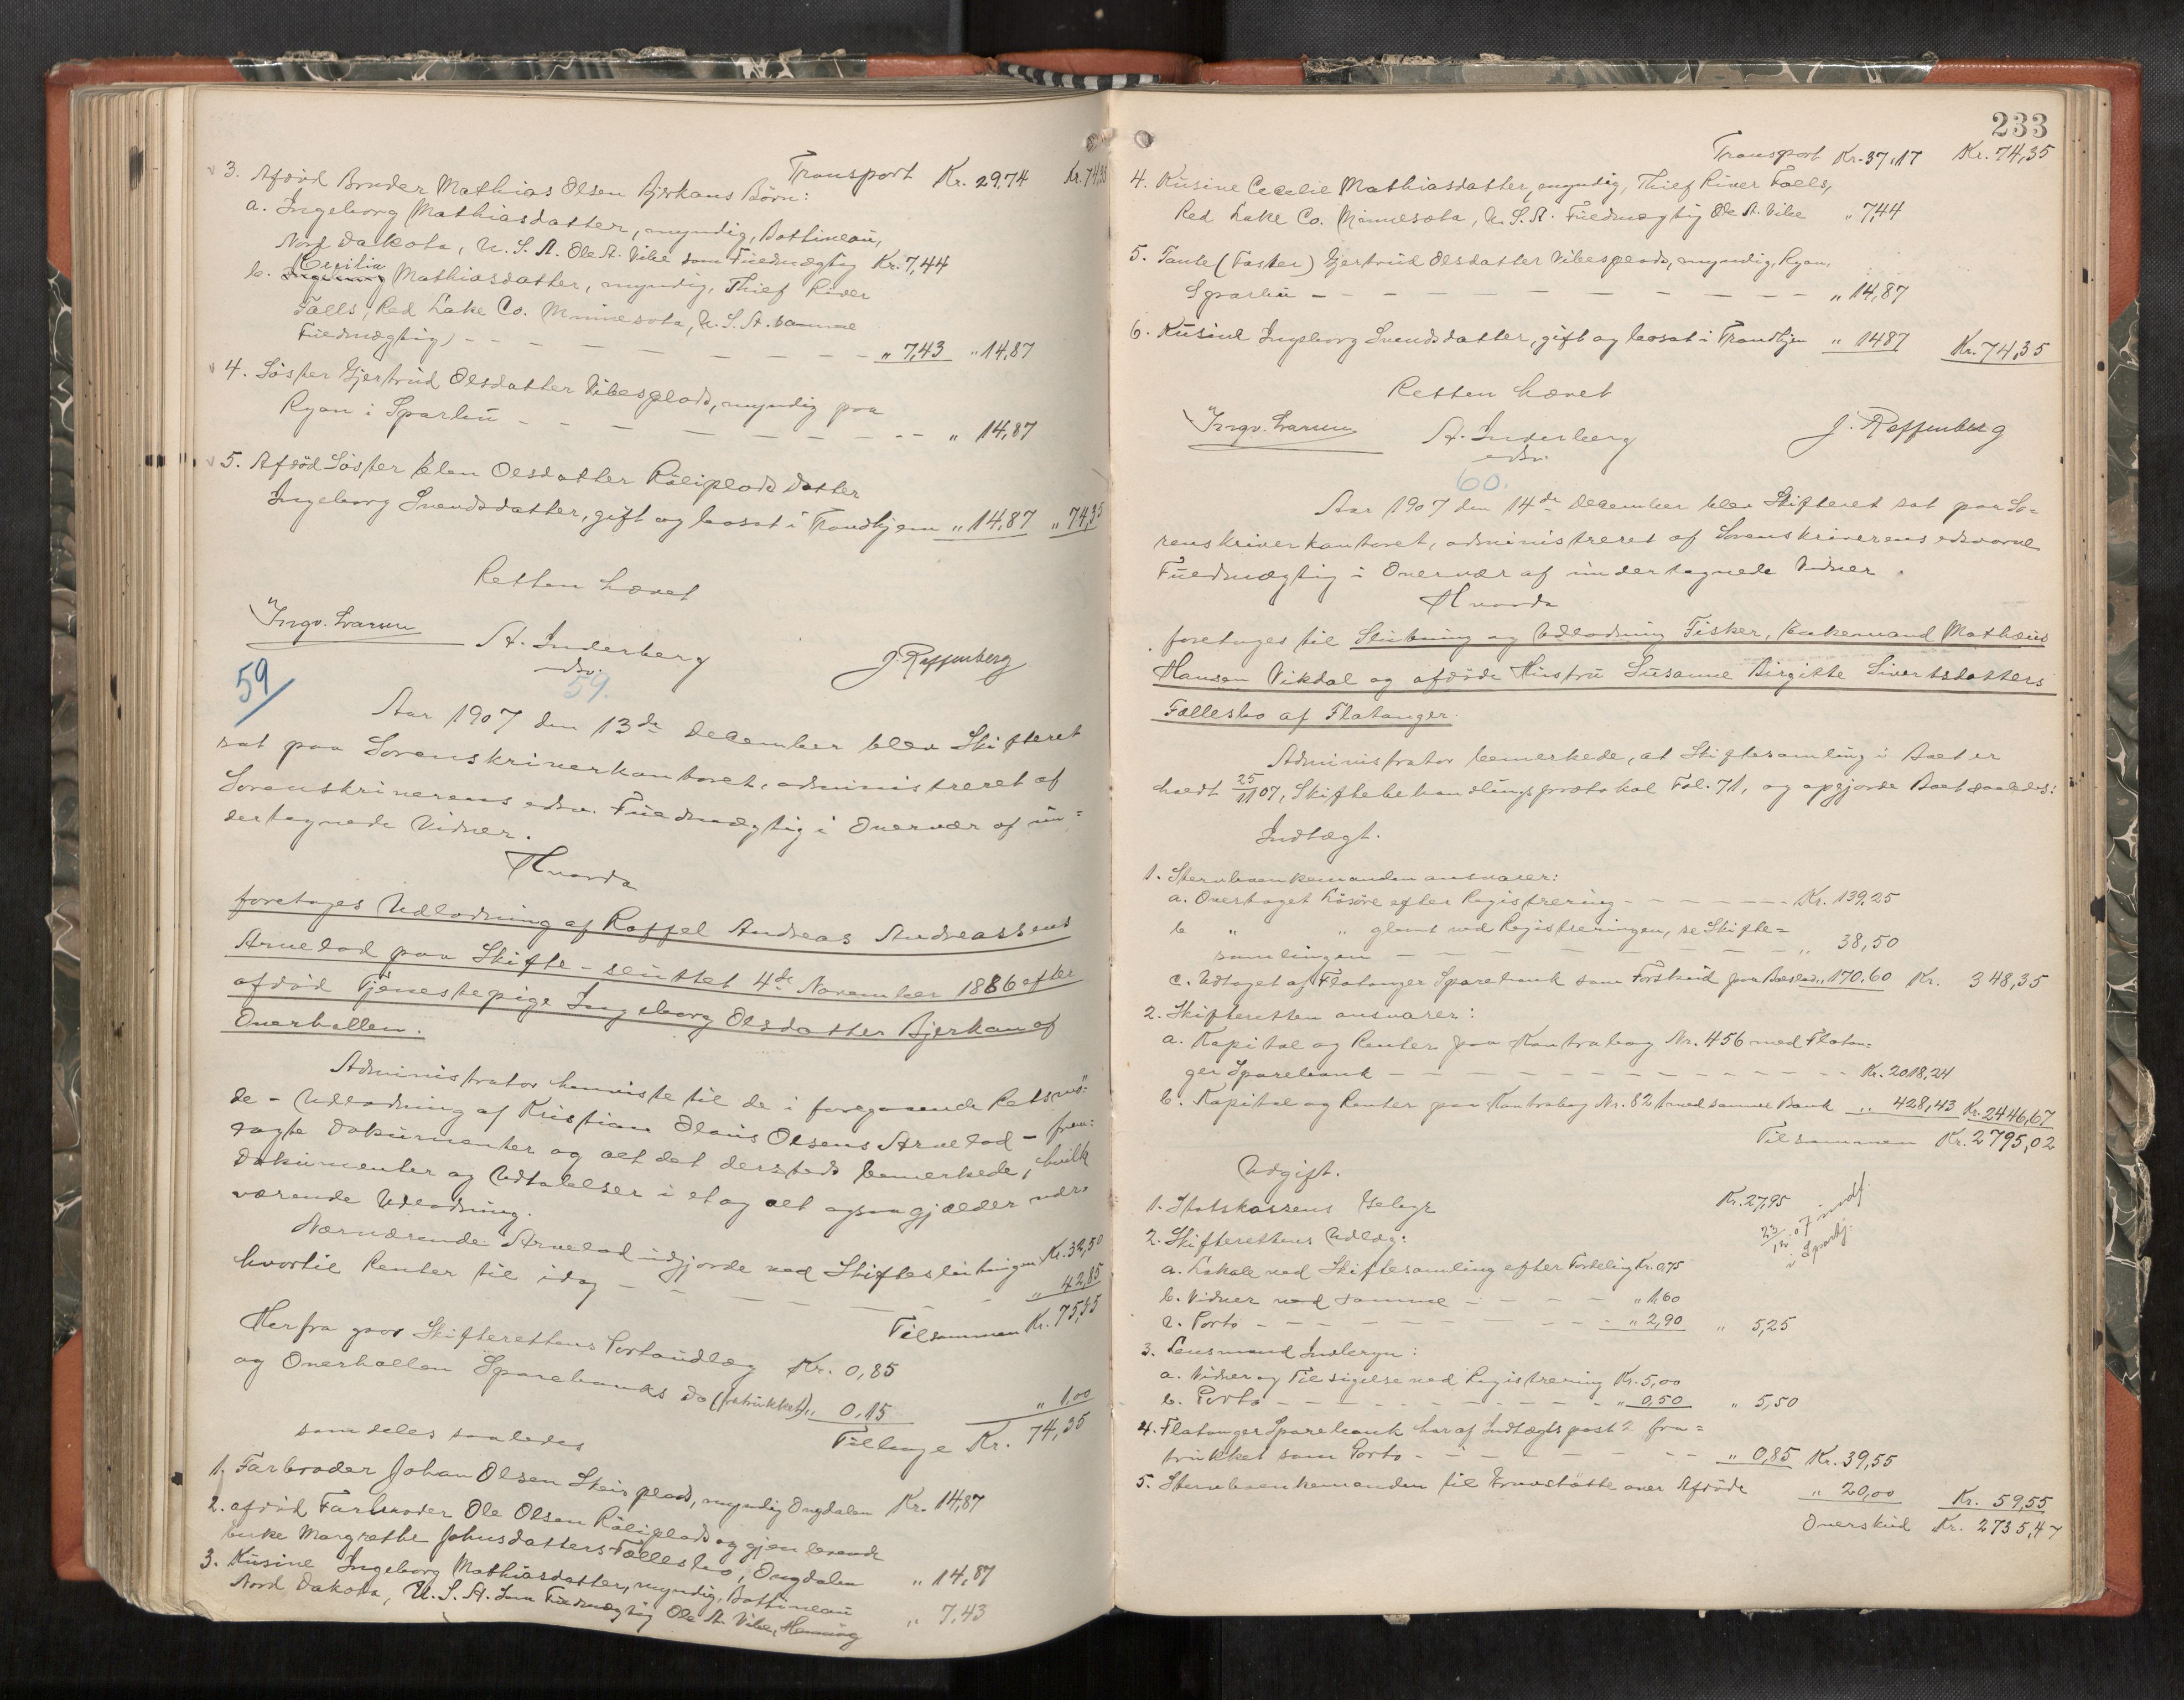 Transport Kr. 29,74 Kr. 74,35
3. Afdød Broder Mathias Olsen Bjerkans Børn:
a. Ingeborg Mathiasdatter, myndig, Bottineau,
Nord Dakota, U. S. A. Ole A. Vibe som Fuldmægtig Kr. 7,44
b. Cecilia Mathiasdatter, myndig, Thief River
Falls, Red Lake Co. Minnesota, U. S. A. samme
Fuldmægtig) - - - - - - - - - " 7,43 " 14,87
4. Søster Gjertrud Olsdatter Vibesplads, myndig paa
Ryan i Sparbu - - - - - - - - - " 14,87
5. Afdød Søster Elen Olsdatter Råliplads Datter
Ingeborg Svendsdatter, gift og bosat i Trondhjem " 14,87 " 74,35
Retten hævet
A. Inderberg
edsv.
J. Raffenberg
59
59.
Aar 1907 den 13de December blev Skifteret
sat paa Sorenskriverkontoret, administreret af
Sorenskriverens edsv. Fuldmægtig i Overvær af un=
dertegnede Vidner.
Hvorda
foretoges Udlodning af Roffel Andreas Andreassens
Arvelod paa Skifte - sluttet 4de November 1886 efter
afdød Tjenestepige Ingeborg Olsdatter Bjerkan af
Overhallen.
Administrator henviste til de i foregaaende Retsmø:
de - Udlodning af Kristian Olaus Olsens Arvelod - frem:
lagte Dokumenter og alt det dersteds bemerkede, hvilk
Dokumenter og Udtalelser i et og alt ogsaa gjælder nær:
værende Udlodning.
Nærværende Arvelod udgjorde ved Skifteslutningen Kr. 32,50
hvortil Renter til idag - - - - - - " 42,85
Tilsammen Kr. 75,35
Herfra gaar Skifterettens Portoudlæg Kr. 0,85
og Overhallen Sparebanks do (fratrukket) " 0,15 " 1,00
Tilbage Kr. 74,35
som deles saaledes
1. Farbroder Johan Olsen Skis plads, myndig Ongdalen Kr. 14,87
2. afdød Farbroder Ole Olsen Råliplads og gjenlevende
Enke Margrethe Johnsdatters Fællesbo, Ongdalen " 14,87
3. Kusine Ingeborg Mathiasdatter, myndig, Bottineau
Nord Dakota, U. S. A. som Fuldmægtig Ole A. Vibe, " 7,43
233
Transport Kr. 37,17 Kr. 74,35
4. Kusine Cecelie Mathiasdatter, myndig, Thief River Falls,
Red Lake Co. Minnesota, U. S. A. Fuldmægtig Ole A. Vibe " 7,44
5. Tante (Faster) Gjertrud Olsdatter Vibesplads, myndig, Ryan,
Sparbu - - - - - - - - - - " 14,87
6. Kusine Ingeborg Svendsdatter, gift og bosat i Trondhjem " 14,87 Kr. 74,35
Retten hævet
A. Inderberg
edsv.
J. Raffenberg
60.
Aar 1907 den 14de December blev Skifteret sat paa So=
renskriverkontoret, administreret af Sorenskriverens edsvorne
Fuldmægtig i Overvær af undertegnede Vidner.
Hvorda
foretoges til Slutning og Udlodning Fisker, Enkemand Mathæus
Hansen Vikdal og afdøde Hustru Susanne Birgitte Sivertsdatters
Fællesbo af Flatanger.
Administrator bemerkede, at Skiftesamling i Boet er
holdt 25/11 07, Skiftebehandlingsprotokol Fol. 71, og opgjorde Boet saaledes:
Indtægt.
1. Stervboenkemanden ansvarer:
a. Overtaget Løsøre efter Registrering - - - - - - Kr. 139,25
b. " " glemt ved Registreringen, se Skifte=
samlingen - - - - - - - - - " 38,50
c. Udtaget af Flatanger Sparebank som Forskud paa Boslod " 170,60 Kr. 348,35
2. Skifteretten ansvarer:
a. Kapital og Renter paa Kontrabog Nr. 456 med Flatan=
ger Sparebank - - - - - - - - - - - Kr. 2018,24
b. Kapital og Renter paa Kontrabog Nr. 82 t med samme Bank " 428,43 Kr. 2446,67
Tilsammen Kr. 2795,02
Udgift.
1. Statskassens Gebyr Kr. 27,95
23/12 07 indf.
i Sparbj.
2. Skifterettens Udlæg:
a. Lokale ved Skiftesamling efter Fordeling Kr. 0,75
b. Vidner ved samme - - - - " 1,60
c. Porto - - - - - - - - " 2,90 " 5,25
3. Lensmand Inderyn:
a. Vidner og Tilsigelse ved Registrering Kr. 5,00
b. Porto - - - - - - - - - " 0,50 " 5,50
4. Flatanger Sparebank har af Indtægtspost 2 fra=
trukket som Porto - - - - - - - " 0,85 Kr. 39,55
5. Stervboenkemanden til Gravstøtte over Afdøde " 20,00 Kr. 59,55
Overskud Kr. 2735,47